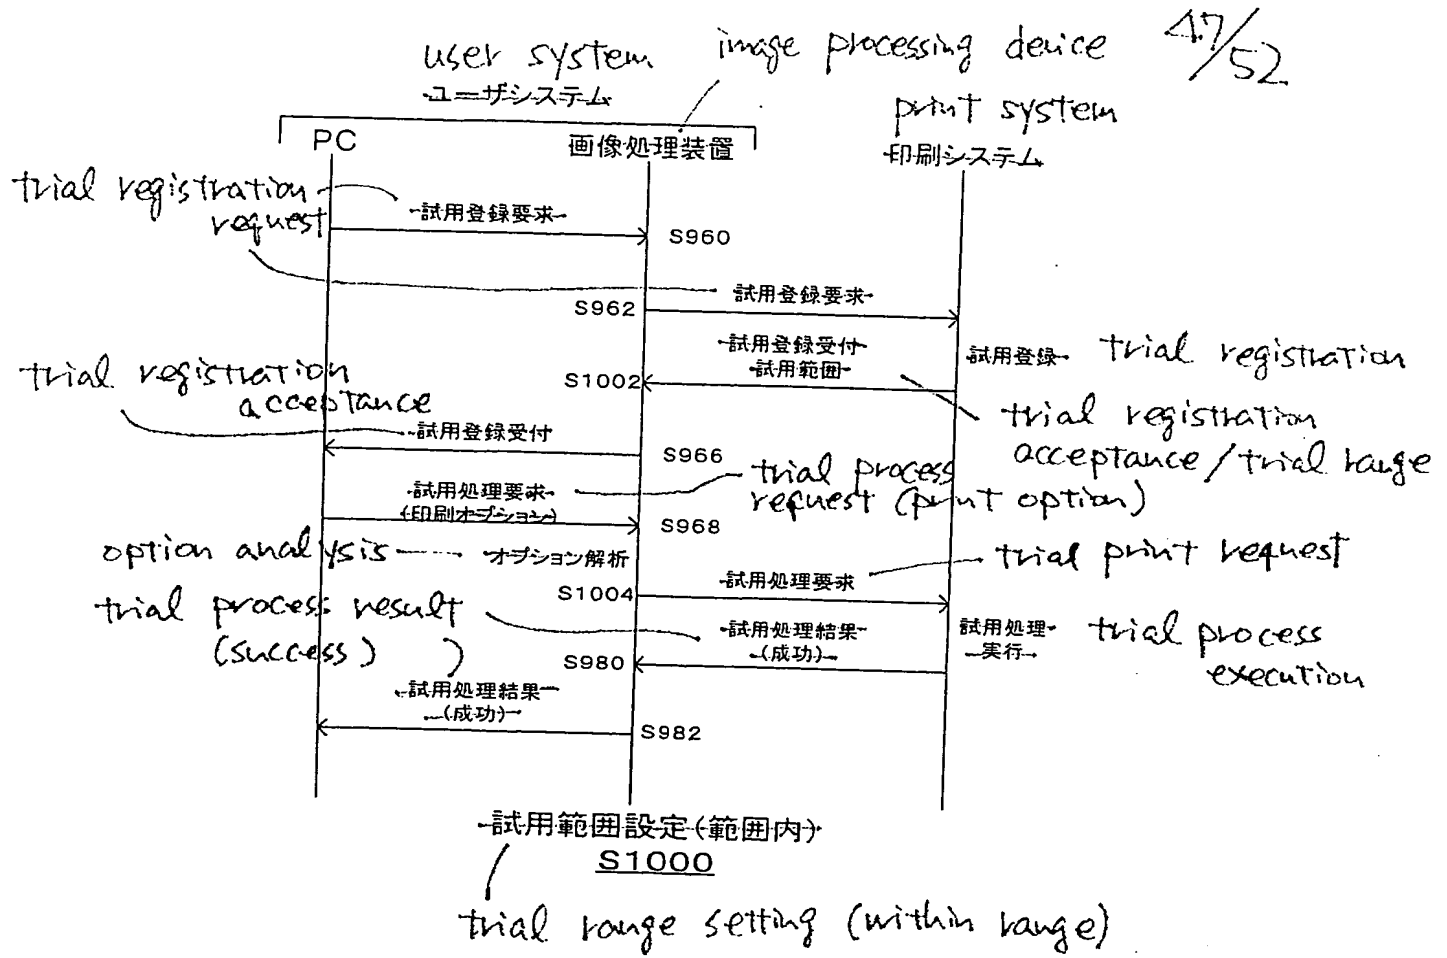 47/52
user system
image processing device
ユーザシステム
print system
PC
画像処理装置
印刷システム
trial registration
request
試用登録要求
S960
試用登録要求
S962
試用登録受付
試用範囲
試用登録
trial registration
S1002
trial registration
acceptance
trial registration
acceptance/trial range
試用登録受付
S966
trial process
request (print option)
試用処理要求
(印刷オプション)
S968
option analysis
オプション解析
trial print request
試用処理要求
S1004
trial process result
(success)
試用処理結果
(成功)
試用処理
実行
trial process
execution
S980
試用処理結果
(成功)
S982
試用範囲設定(範囲内)
S1000
trial range setting (within range)